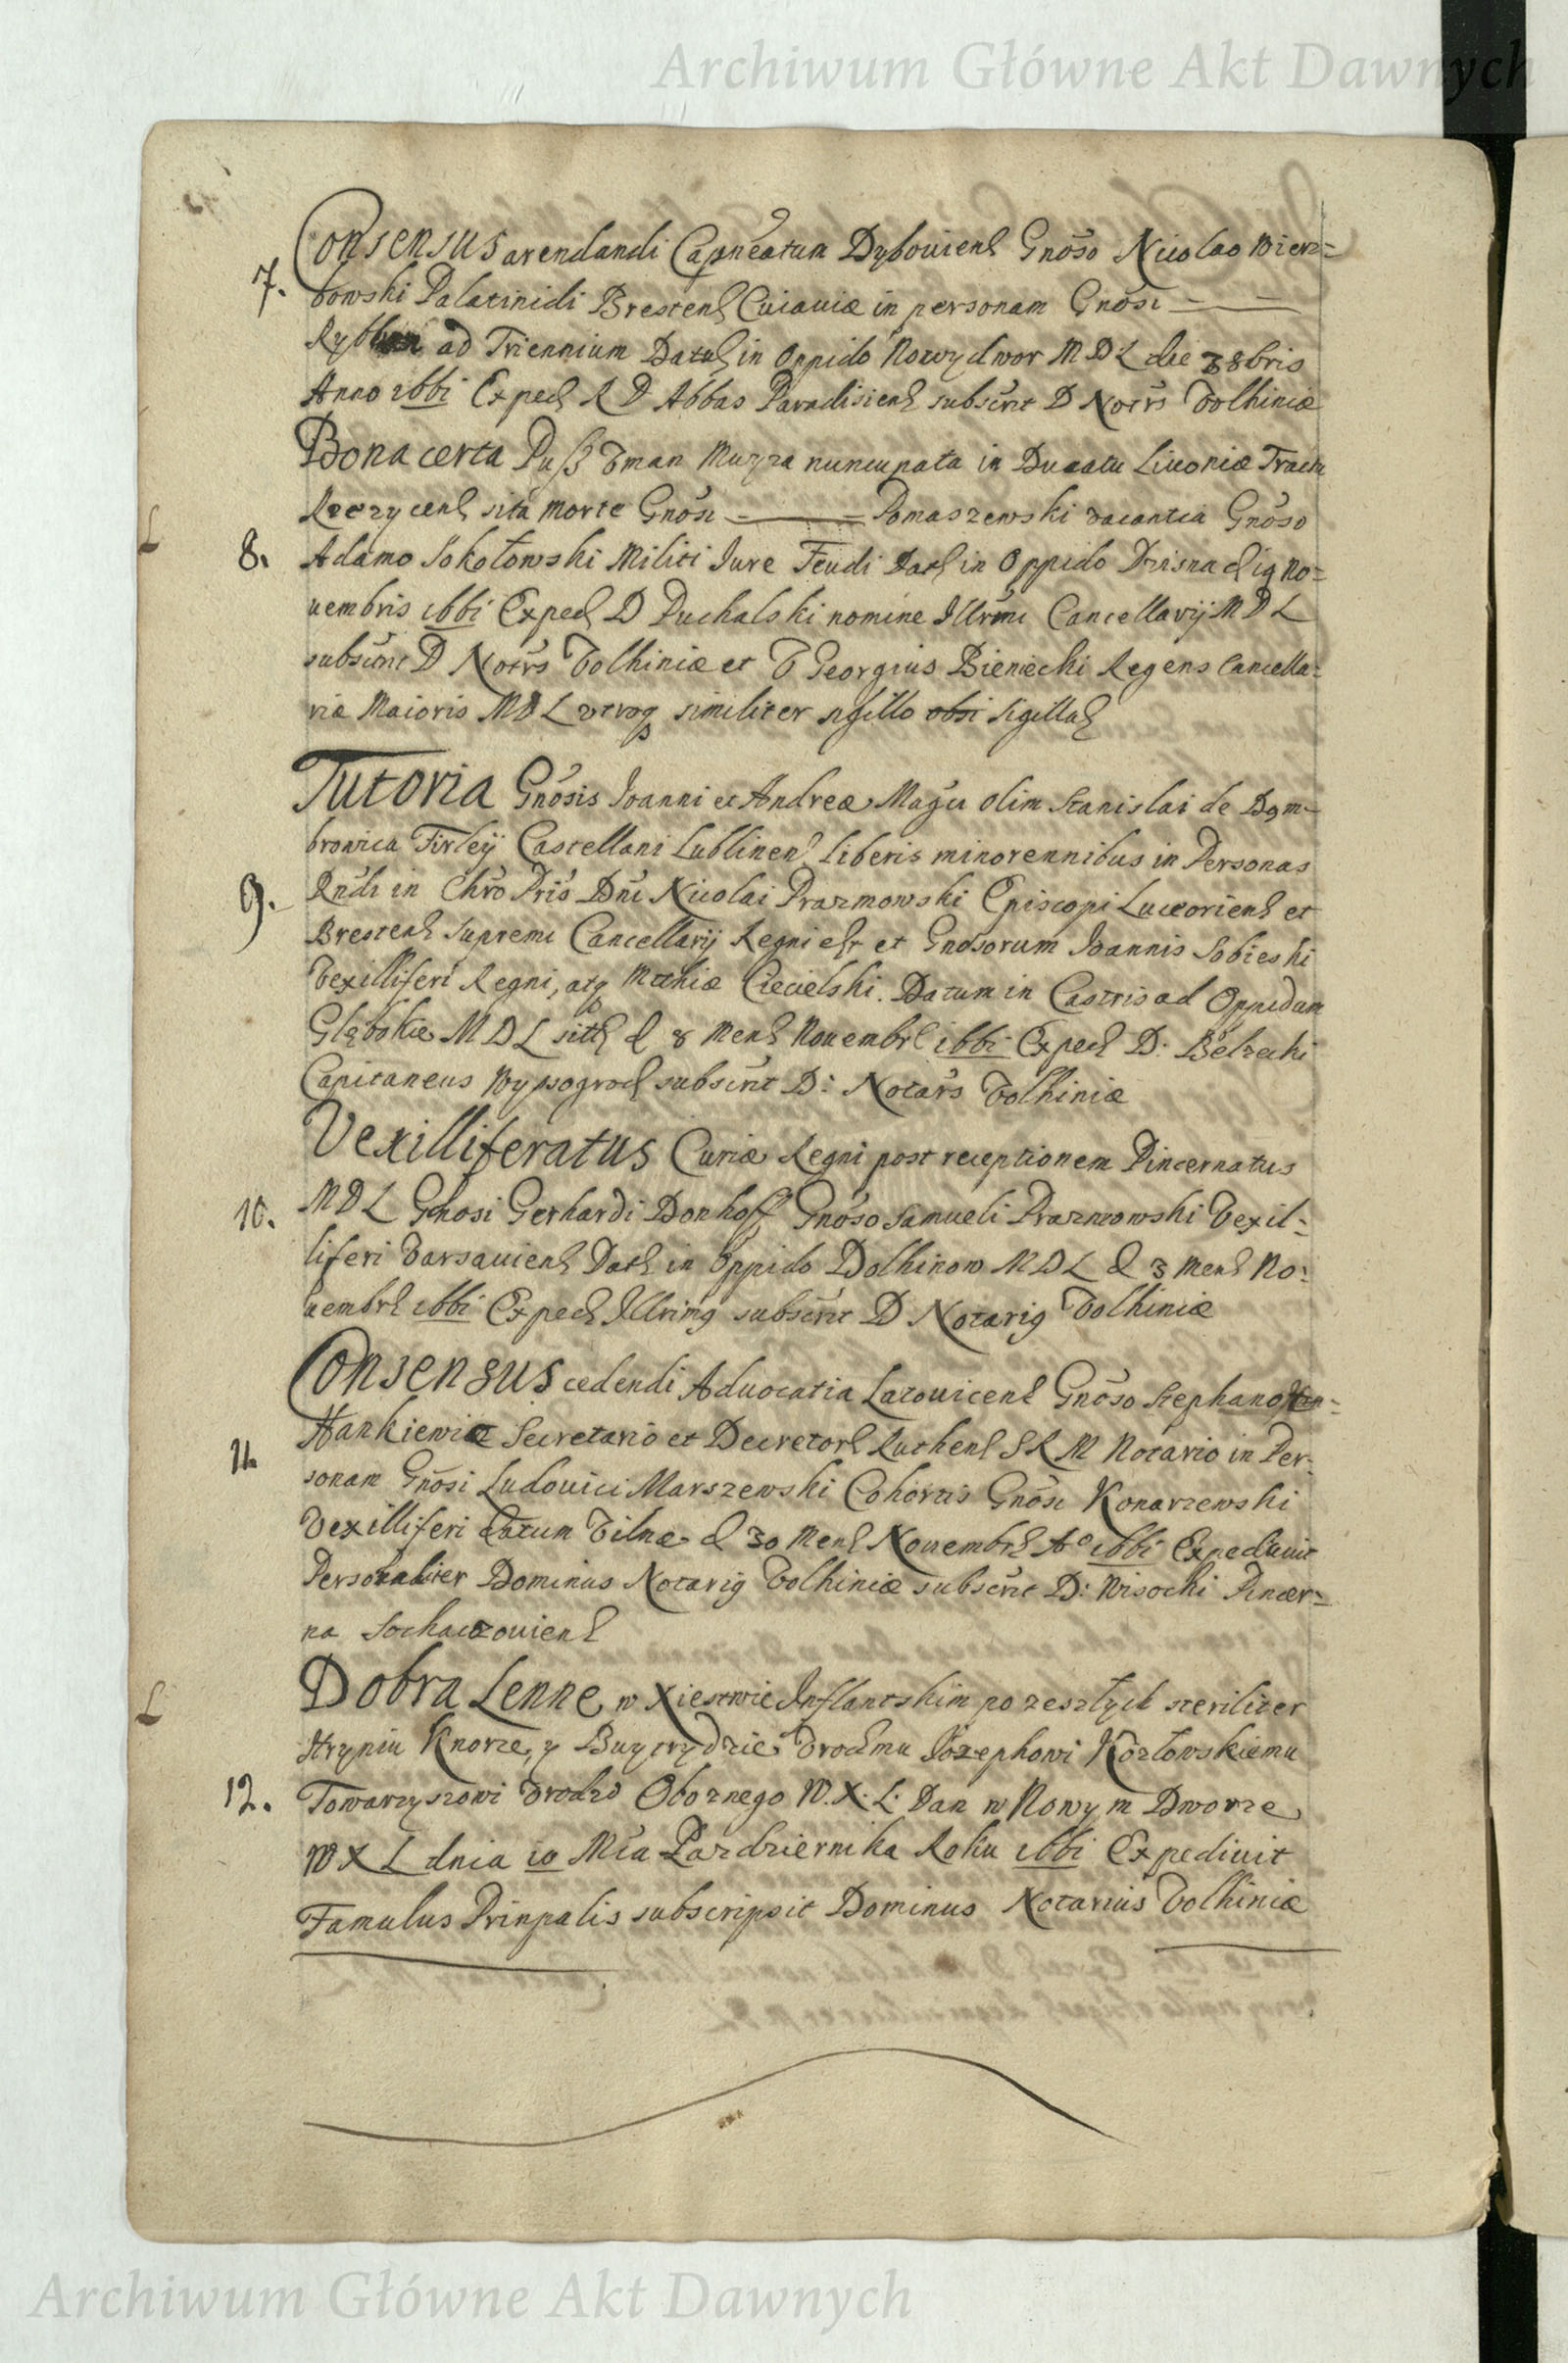 Archiwum Główne Akt Dawnych
Consensus arendandi Capneatum Dybouiens Gnoso Nicolao Wierz=
7. bowski Palatinidi Brestens Cuiauiæ in personam Gnosi
ad Triennium Datus in Oppido Nowydwor MDL die 3 8bris
Anno 1661 Exped R D Abbas Paradisiens subscrit D Notrs Volhiniæ
Bona certa Puss Vman Muyza nuncupata in Ducatu Liuoniæ Tractu
L Rzezycens sita morte Gnosi Pomaszewski vacantia Gnoso
8. Adamo Sokołowski Militi Iure Feudi Dats in Oppido Dzisna d 19 No=
uembris 1661 Exped D Puchalski nomine Illrmi Cancellarij MDL
subscrit D Notrs Volhiniæ et G Georgius Bieniecki Regens Cancella=
riæ Maioris MDL vtroq similiter sigillo obsi Sigillat
Tutoria Gnosis Ioanni et Andreæ Magci olim Stanislai de Dom=
browica Firleÿ Castellani Lublinens Liberis minorennibus in Personas
9. Rndi in Chro Pris Dni Nicolai Prazmowski Episcopi Luceoriens et
Brestens Supremi Cancellarij Regni elt et Gnosorum Ioannis Sobieski
Vexilliferi Regni, atq Mathiæ Ciecielski. Datum in Castris ad Oppidum
Głębokie MDL sits d 8 Mens Nouembrs 1661 Exped D: Bełzecki
Capitaneus Wyssogrod subscrit D: Notars Volhiniæ
Vexilliferatus Curiæ Regni post receptionem Pincernatus
10. MDL Gnosi Gerhardi Donhoff Gnoso Samueli Prazmowski Vexil=
liferi Varsauiens Dats in Oppido Dolhinow MDL d 3 Mens No=
uembrs 1661 Exped Illrimq subscrit D Notariq Volhiniæ
Consensus cedendi Aduocatia Latouicens Gnoso Stephano
11. Hankiewicz Secretario et Decretors Ruthens S R M Notario in Per=
sonam Gnosi Ludouici Marszewski Cohortis Gnosi Konarzewski
Vexilliferi Datum Vilnæ d 30 Mens Nouembrs Ao 1661 Expediuit
Personaliter Dominus Notariq Volhiniæ subscrit D: Wisocki Pincer=
na Sochaczouiens
Dobra Lenne w Xiestwie Inflantskim po zeszłych steriliter
L Hryniu Knorze, y Buytrydzie Vrodzmu Iozephowi Kozłowskiemu
12. Towarzyszowi Vrodzo Oboznego W. X. L. Dan w Nowym Dworze
W X L dnia 10 Mca Pazdziernika Roku 1661 Expediuit
Famulus Prinpalis subscripsit Dominus Notarius Volhiniæ
Archiwum Główne Akt Dawnych